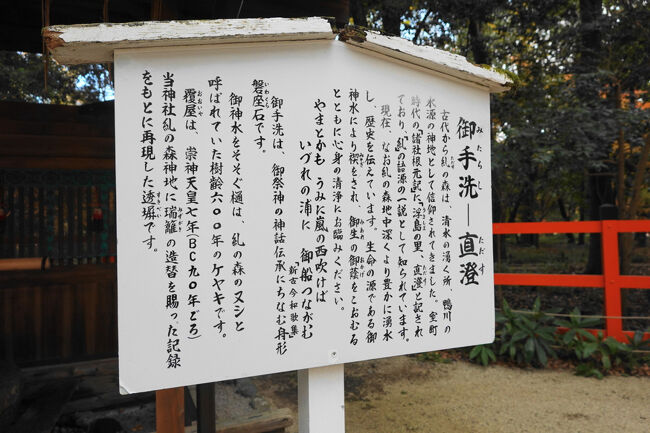 御手洗―直澄
みたらし
ただす
古代から糺の森は、清水の湧く所、鴨川の
水源の神地として信仰されてきました。室町
時代の「諸社根元記」に「浮島の里、直澄」と記され
ており、「糺」の語源の一説として知られています。
現在、なお糺の森地中深くより豊かに湧水
し、歴史を伝えています。生命の源である御
神水により禊をされ、御生の御蔭をこおむる
とともに心身の清浄にお臨みください。
やまとかも うみに嵐の西吹けば
いづれの浦に 御船つながむ
「新古今和歌集」
御手洗は、御祭神の神話伝承にちなむ舟形
磐座石です。
いわくら
御神水をそそぐ樋は、糺の森のヌシと
呼ばれていた樹齢六〇〇年のケヤキです。
覆屋は、崇神天皇七年(BC九〇年ごろ)
おおいや
当神社糺の森神地に瑞籬の造替を賜った記録
をもとに再現した透塀です。